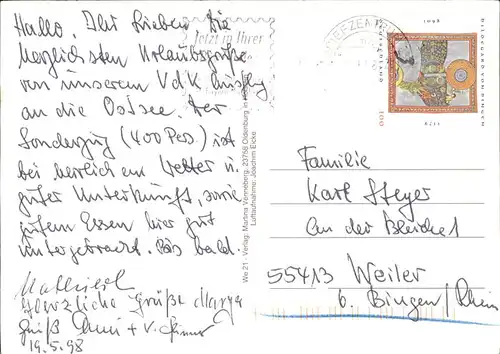 Hallo, Ihr Lieben! Die
herzlichsten Urlaubsgrüße
von unserem VdK Ausflug
an die Ostsee. Der
Sonderzug (400 Pers.) ist
bei herrlichem Wetter u.
guter Unterkunft, sowie
gutem Essen hier gut
untergebracht. Bis bald.
Herzliche Grüße Marga
Gruß
19.5.98
Jetzt in Ihrer
We 21 - Verlag: Martina Venneberg, 23758 Oldenburg in
Luftaufnahme: Joachim Eicke
BRIEFZE
1098
HILDEGARD VON BINGEN
DEUTSCHLAND
100
1179
Familie
Karl Steyer
An der Bleiche 1
55413 Weiler
b. Bingen/Rhein